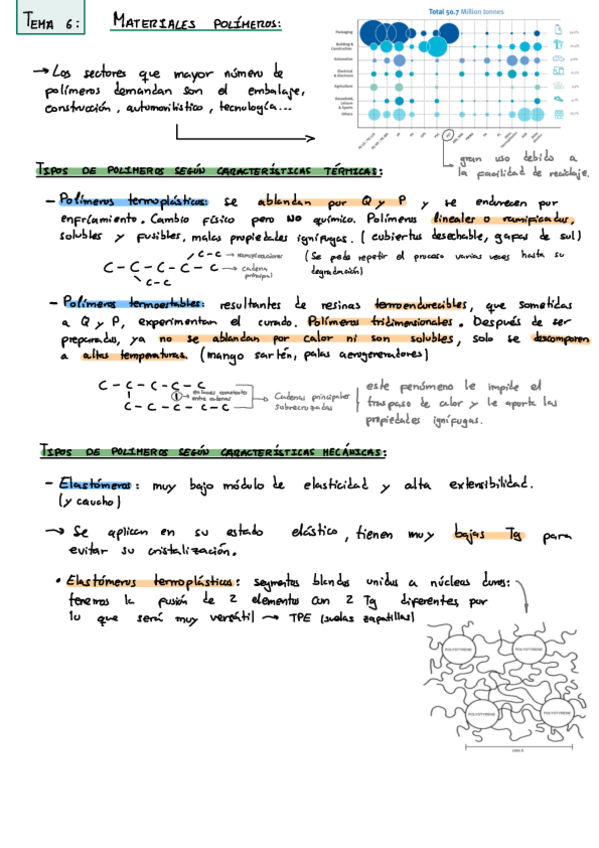 TEMA 6: MATERIALES POLÍMEROS:
Total 50.7 Million tonnes
Packaging
Building & Construction
Automotive
Electrical & Electronic
Agriculture
Household, Leisure & Sports
Others
→ Los sectores que mayor número de
polímeros demandan son el embalaje,
construcción, automovilístico, tecnología...
gran uso debido a
la facilidad de reciclaje.
TIPOS DE POLIMEROS SEGÚN CARACTERÍSTICAS TÉRMICAS:
- Polímeros termoplásticos: se ablandan por Q y P y se endurecen por
enfriamiento. Cambio físico pero NO químico. Polímeros lineales o ramificados,
solubles y fusibles, malas propiedades ignífugas. (cubiertos desechable, gafas de sol)
C-C → Ramificaciones
C-C-C-C-C → cadena principal
C-C
(Se puede repetir el proceso varias veces hasta su
degradación)
- Polímeros termoestables: resultantes de resinas termoendurecibles, que sometidas
a Q y P, experimentan el curado. Polímeros tridimensionales. Después de ser
preparados, ya no se ablandan por calor ni son solubles, solo se descomponen
a altas temperaturas. (mango sartén, palas aerogeneradores)
C-C-C-C-C
entre cadenas
C-C-C-C-C
Cadenas principales
sobrecruzadas
este fenómeno le impide el
traspaso de calor y le aporta las
propiedades ignífugas.
TIPOS DE POLIMEROS SEGÚN CARACTERÍSTICAS MECÁNICAS:
- Elastómeros: muy bajo módulo de elasticidad y alta extensibilidad.
(y caucho)
→ Se aplican en su estado elástico, tienen muy bajas Tg para
evitar su cristalización.
• Elastómeros termoplásticos: segmentos blandos unidos a núcleos duros:
tenemos la fusión de 2 elementos con 2 Tg diferentes, por
lo que será muy versátil → TPE (suelas zapatillas)
POLYSTYRENE
POLYSTYRENE
POLYSTYRENE
POLYSTYRENE